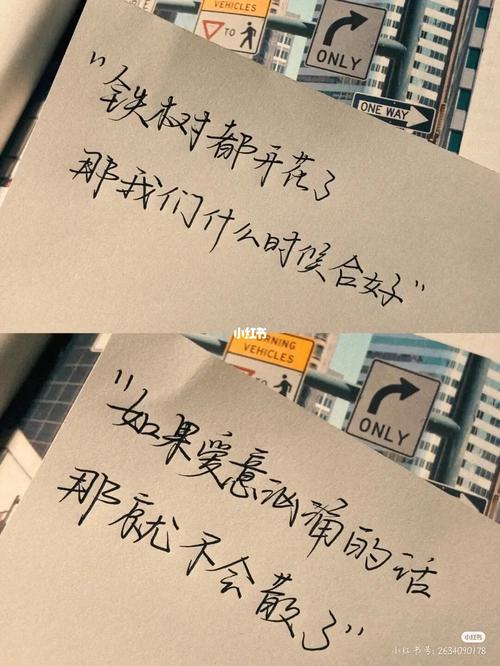 VEHICLES
TO
ONLY
ONE WAY
"铁树都开花了
那我们什么时候合好"
小红书
RNING
VEHICLES
ONLY
"如果爱意汹痛的话
那就不会散了"
小红书
小红书号: 2634090178